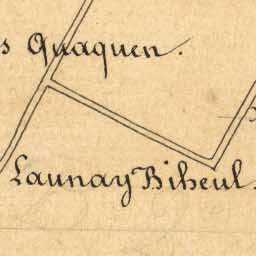 s Quaquen.
Launay Biheul.